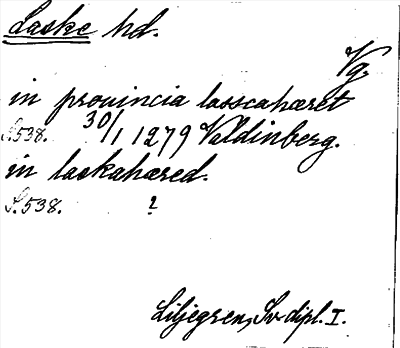 Laske hd.
Vg.
in provincia lasscahæret
S.538. 30/1 1279 Valdinberg.
in laskahæred.
S.538. ?
Liljegren, Sv. dipl. I.